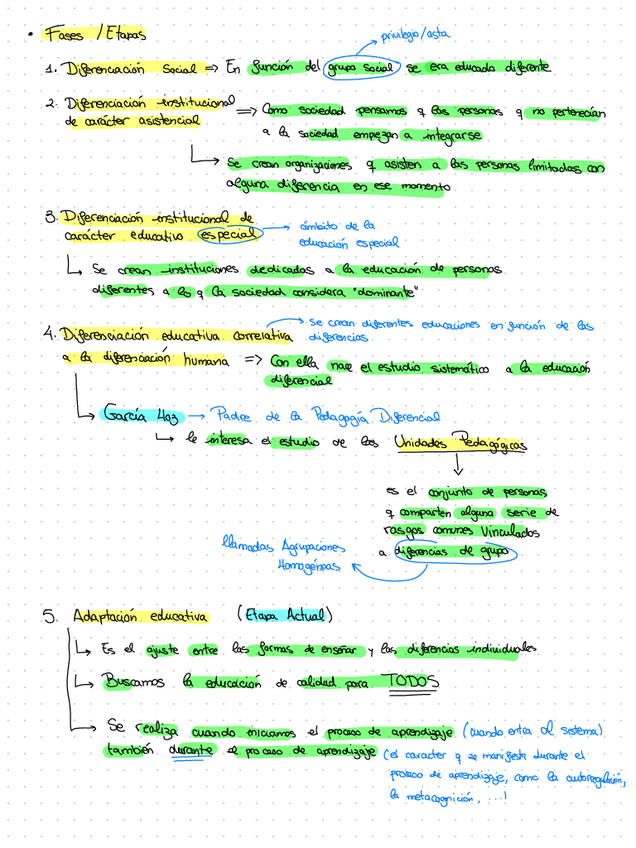 • Fases / Etapas
privilegio/casta
1. Diferenciación Social => En función del grupo social se era educado diferente
2. Diferenciación institucional de carácter asistencial => Como sociedad pensamos q las personas q no pertenecían
a la sociedad empezan a integrarse
Se crean organizaciones q asisten a las personas limitadas con
alguna diferencia en ese momento
3. Diferenciación institucional de
carácter educativo especial
ámbito de la
educación especial
Se crean instituciones dedicadas a la educación de personas
diferentes a lo q la sociedad considera "dominante"
se crean diferentes educaciones en función de las
diferencias
4. Diferenciación educativa correlativa
a la diferenciación humana => Con ella nace el estudio sistemático a la educación
diferencial
García Hoz → Padre de la Pedagogía Diferencial
le interesa el estudio de las Unidades Pedagógicas
es el conjunto de personas
q comparten alguna serie de
rasgos comunes vinculados
a diferencias de grupo
llamadas Agrupaciones
Homogéneas
5. Adaptación educativa (Etapa Actual)
Es el ajuste entre las formas de enseñar y las diferencias individuales
Buscamos la educación de calidad para TODOS
Se realiza cuando iniciamos el proceso de aprendizaje (cuando entra al sistema)
también durante el proceso de aprendizaje (el caracter q se manifiesta durante el
proceso de aprendizaje, como la autorregulación,
la metacognición, ...)